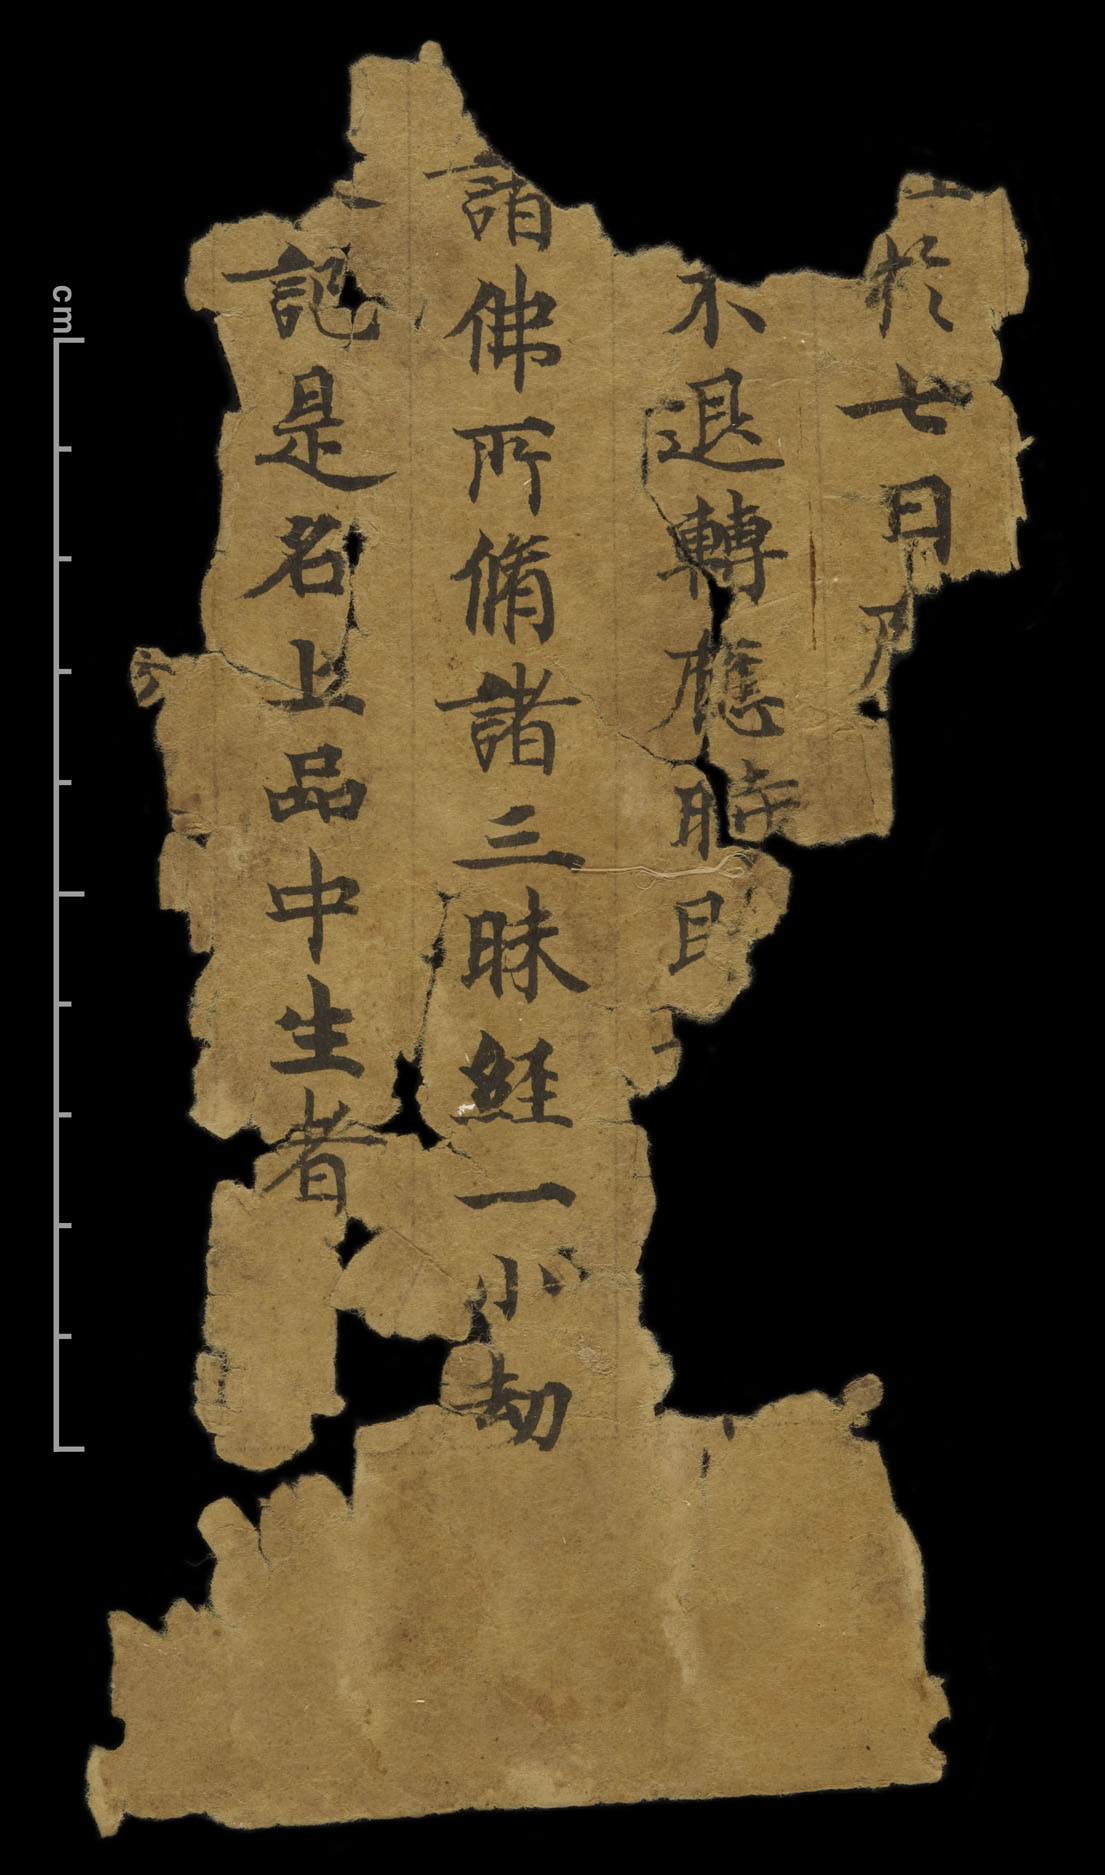 於七日
不退轉應時即
諸佛所脩諸三昧經一小劫
記是名上品中生者